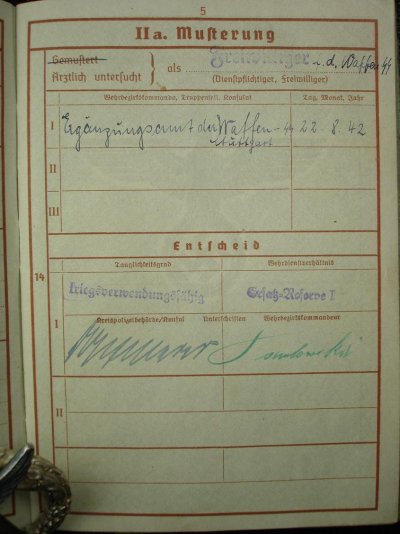 5
IIa. Musterung
Gemustert
Ärztlich untersucht
als Freiwilliger i. d. Waffen SS
(Dienstpflichtiger, Freiwilliger)
Wehrbezirkskommando, Truppenteil, Konsulat
Tag, Monat, Jahr
I Ergänzungsamt der Waffen-SS 22. 8. 42
Stuttgart
II
III
Entscheid
14
Tauglichkeitsgrad
Wehrdienstverhältnis
kriegsverwendungsfähig
Ersatz-Reserve I
Kreispolizeibehörde/Konsul Unterschriften Wehrbezirkskommandeur
I
II